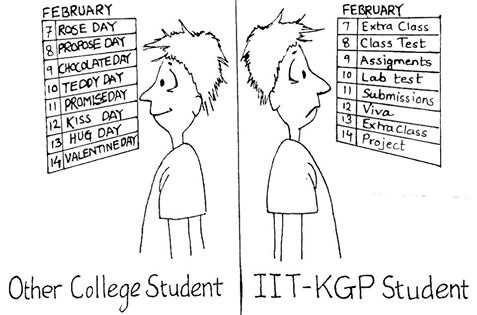 FEBRUARY
7 ROSE DAY
8 PROPOSE DAY
9 CHOCOLATE DAY
10 TEDDY DAY
11 PROMISE DAY
12 KISS DAY
13 HUG DAY
14 VALENTINE DAY
Other College Student
FEBRUARY
7 Extra Class
8 Class Test
9 Assigments
10 Lab test
11 Submissions
12 Viva
13 Extra Class
14 Project
IIT-KGP Student